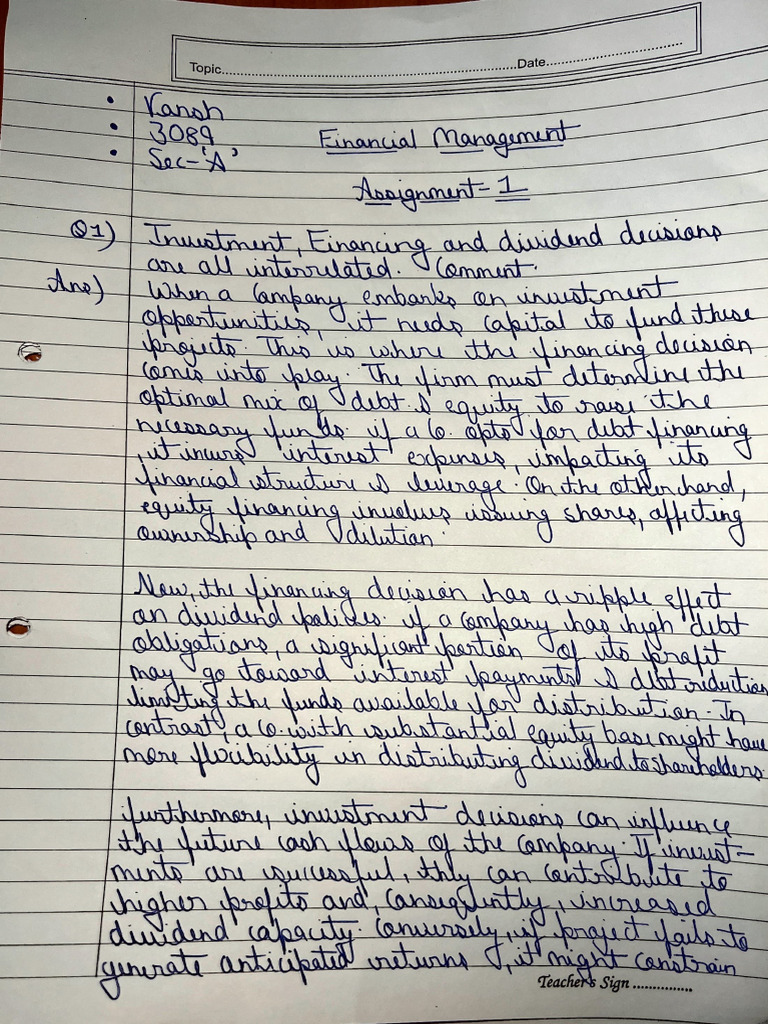 Topic.......................................................................Date.......................................
• Vansh
• 3089
• Sec-'A'
Financial Management
Assignment-1
Q1) Investment, Financing and dividend decisions
are all interrelated. Comment.
Ans) When a Company embarks on investment
opportunities, it needs capital to fund these
projects. This is where the financing decision
comes into play. The firm must determine the
optimal mix of debt & equity to raise the
necessary funds. if a Co. opts for debt financing
, it incurs interest expenses, impacting its
financial structure & leverage. On the other hand,
equity financing involves issuing shares, affecting
ownership and dilution.
Now, the financing decision has a ripple effect
on dividend policies. if a company has high debt
obligations, a significant portion of its profit
may go toward interest payments & debt reduction
limiting the funds available for distribution. In
contrast, a Co. with substantial equity base might have
more flexibility in distributing dividend to shareholders.
furthermore, investment decisions can influence
the future cash flows of the company. If invest-
ments are successful, they can contribute to
higher profits and, consequently, increased
dividend capacity. Conversely, if project fails to
generate anticipated returns, it might constrain
Teacher's Sign ...............